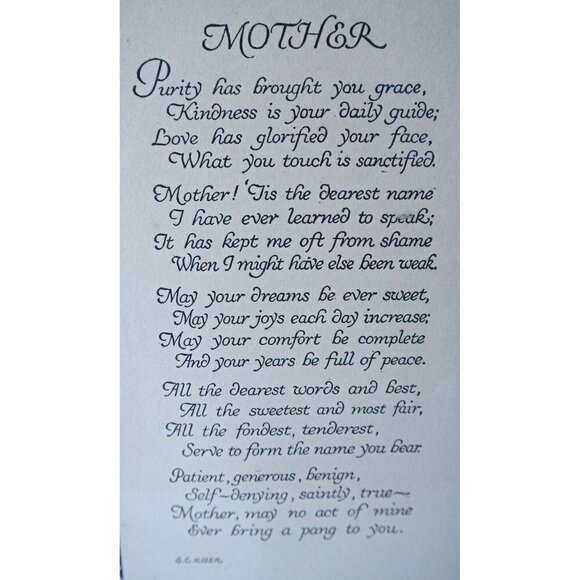 MOTHER
Purity has brought you grace,
Kindness is your daily guide;
Love has glorified your face,
What you touch is sanctified.
Mother! 'Tis the dearest name
I have ever learned to speak;
It has kept me oft from shame
When I might have else been weak.
May your dreams be ever sweet,
May your joys each day increase;
May your comfort be complete
And your years be full of peace.
All the dearest words and best,
All the sweetest and most fair,
All the fondest, tenderest,
Serve to form the name you bear.
Patient, generous, benign,
Self-denying, saintly, true—
Mother, may no act of mine
Ever bring a pang to you.
S.E. KISER